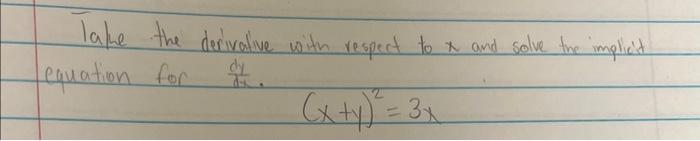 Take the derivative with respect to x and solve the implicit
equation for dy/dx.
(x+y)² = 3x